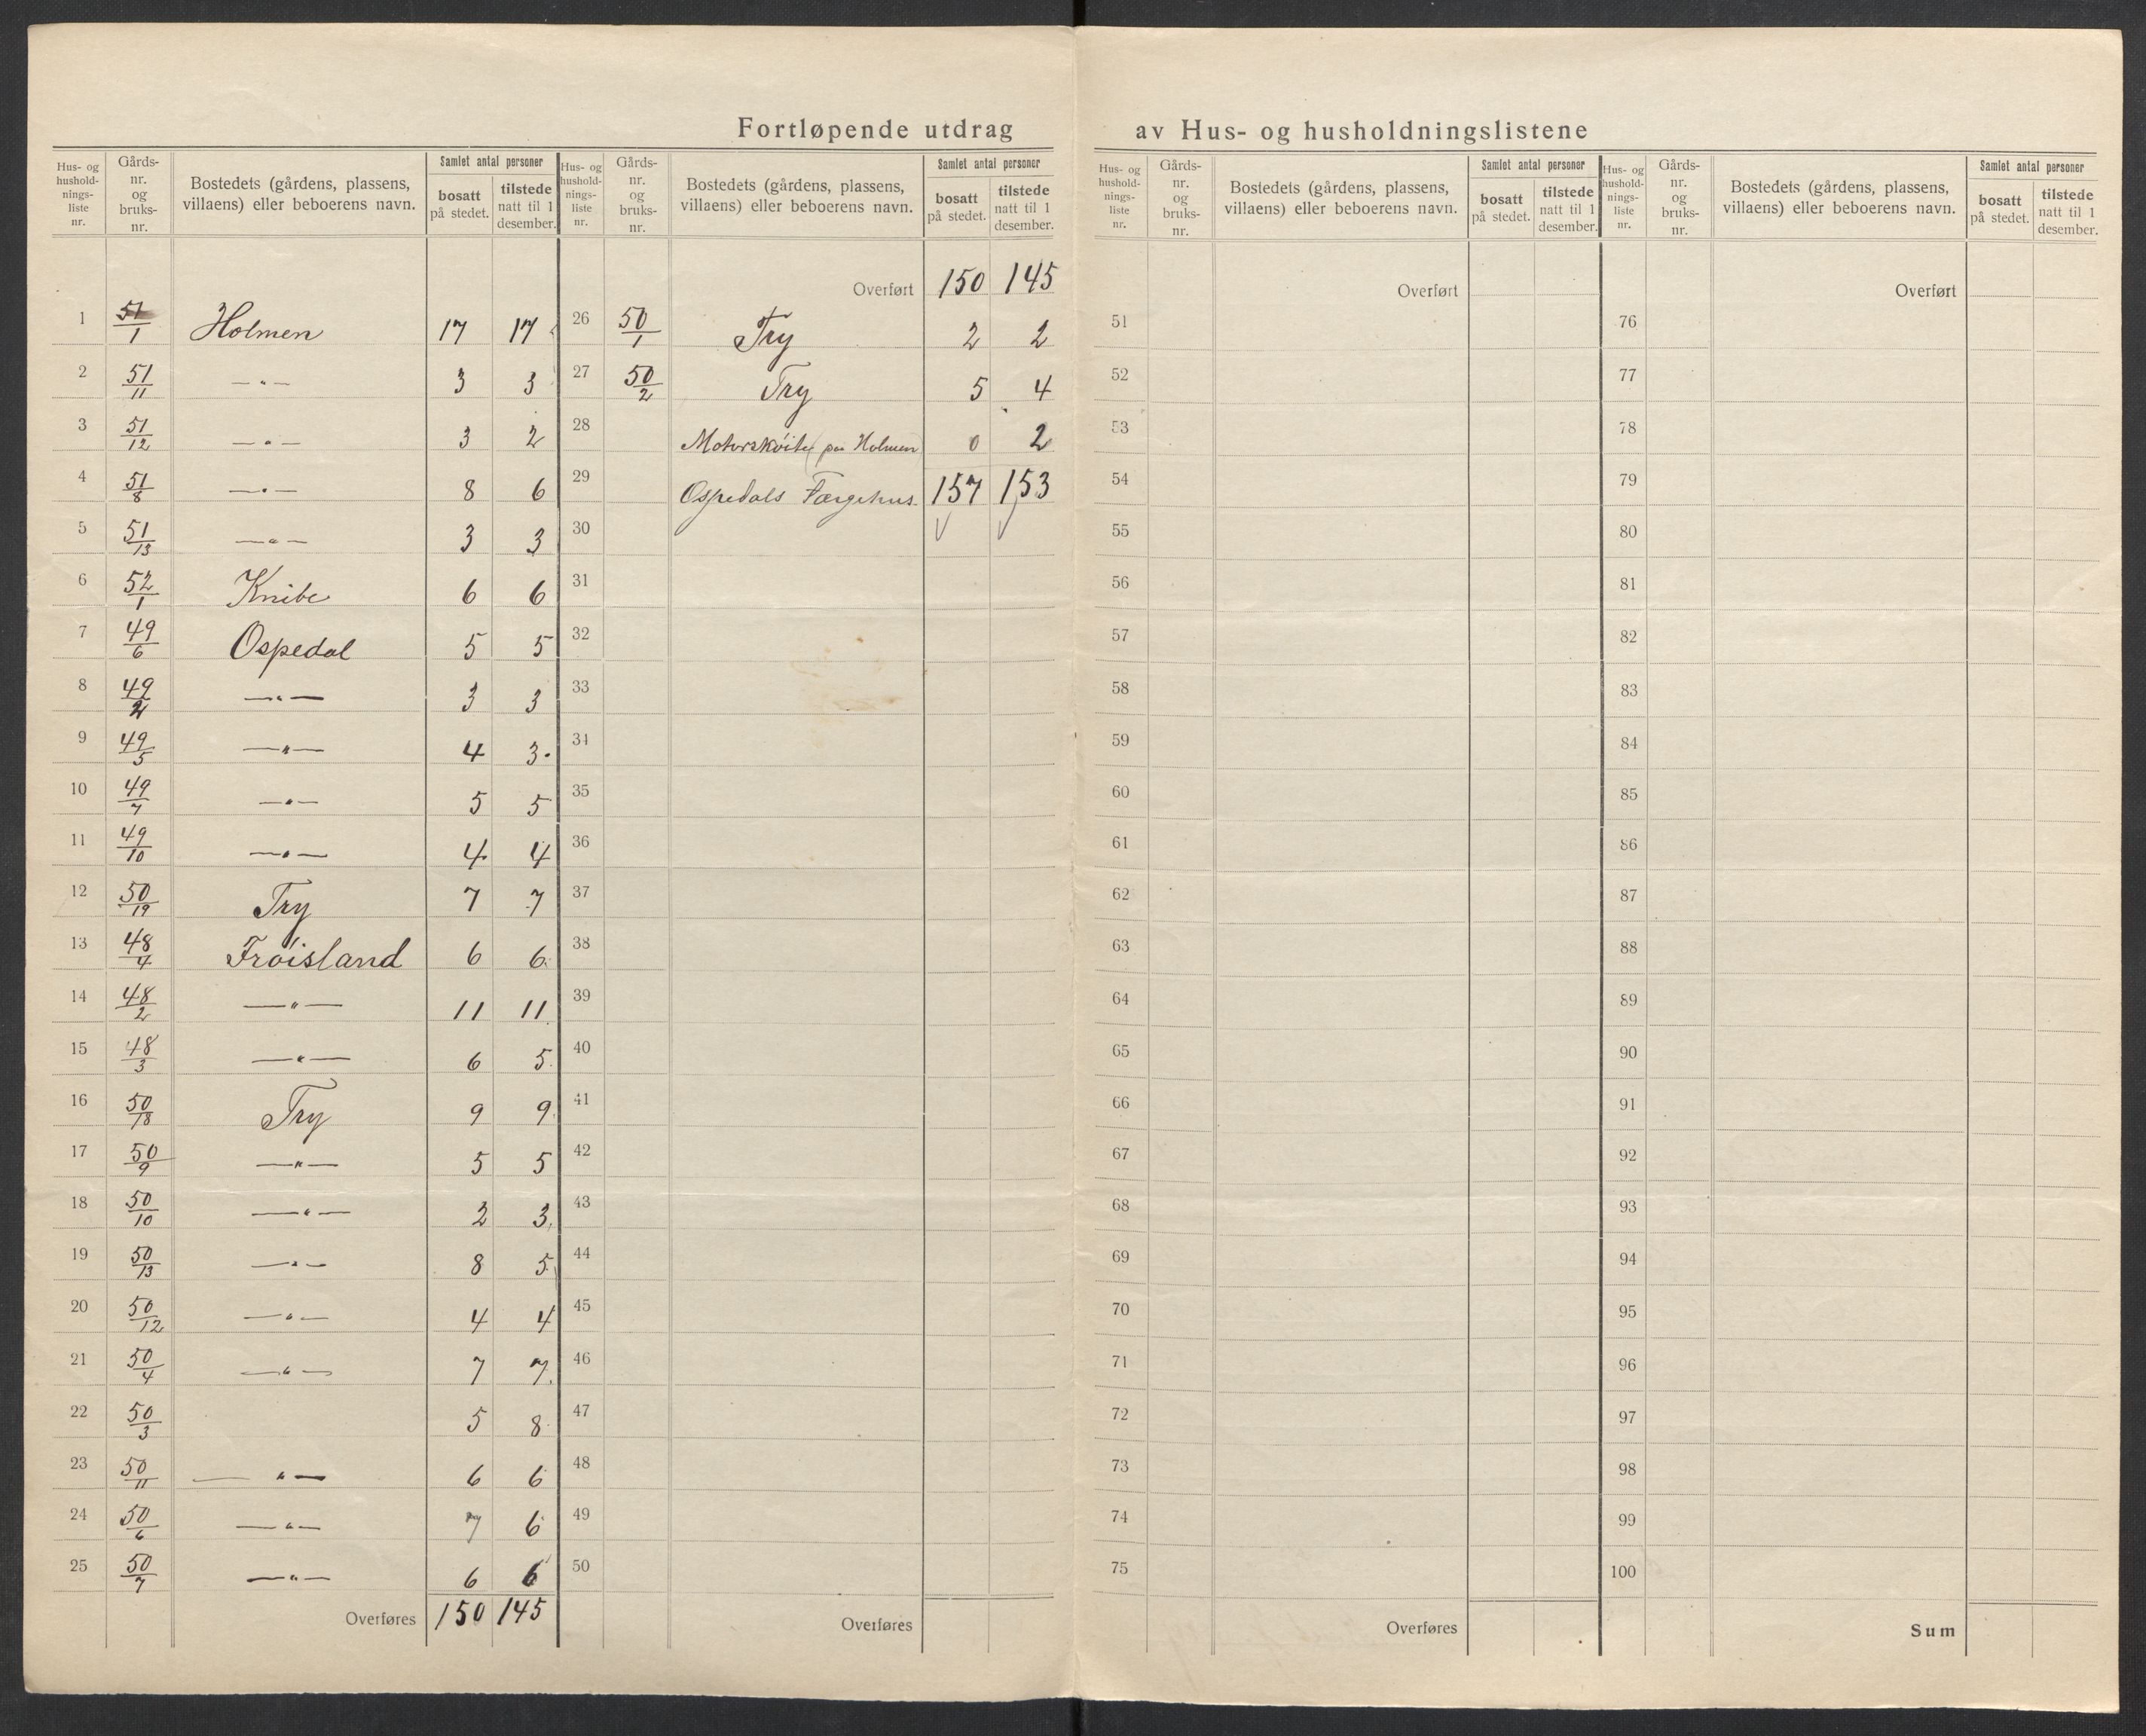 Fortløpende utdrag av Hus- og husholdningslistene
Hus- og hushold-nings-liste nr. Gårds-nr. og bruks-nr. Bostedets (gårdens, plassens, villaens) eller beboerens navn. Samlet antal personer bosatt på stedet. tilstede natt til 1 desember.
1 51/1 Holmen 17 17
2 51/11 —"— 3 3
3 51/12 —"— 3 2
4 51/8 —"— 8 6
5 51/13 —"— 3 3
6 52/1 Knibe 6 6
7 49/6 Ospedal 5 5
8 49/2 —"— 3 3
9 49/5 —"— 4 3
10 49/7 —"— 5 5
11 49/10 —"— 4 4
12 50/19 Try 7 7
13 48/4 Frøisland 6 6
14 48/2 —"— 11 11
15 48/3 —"— 6 5
16 50/18 Try 9 9
17 50/9 —"— 5 5
18 50/10 —"— 2 3
19 50/13 —"— 8 5
20 50/12 —"— 4 4
21 50/4 —"— 7 7
22 50/3 5 8
23 50/11 —"— 6 6
24 50/6 —"— 7 6
25 50/7 —"— 6 6
Overføres 150 145
Hus- og hushold-nings-liste nr. Gårds-nr. og bruks-nr. Bostedets (gårdens, plassens, villaens) eller beboerens navn. Samlet antal personer bosatt på stedet. tilstede natt til 1 desember.
Overført 150 145
26 50/1 Try 2 2
27 50/2 Try 5 4
28 Motorskøite paa Holmen 0 2
29 Ospedals Færgehus. 157 153
30
31
32
33
34
35
36
37
38
39
40
41
42
43
44
45
46
47
48
49
50
Overføres
Hus- og hushold-nings-liste nr. Gårds-nr. og bruks-nr. Bostedets (gårdens, plassens, villaens) eller beboerens navn. Samlet antal personer bosatt på stedet. tilstede natt til 1 desember.
Overført
51
52
53
54
55
56
57
58
59
60
61
62
63
64
65
66
67
68
69
70
71
72
73
74
75
Overføres
Hus- og hushold-nings-liste nr. Gårds-nr. og bruks-nr. Bostedets (gårdens, plassens, villaens) eller beboerens navn. Samlet antal personer bosatt på stedet. tilstede natt til 1 desember.
Overført
76
77
78
79
80
81
82
83
84
85
86
87
88
89
90
91
92
93
94
95
96
97
98
99
100
Sum